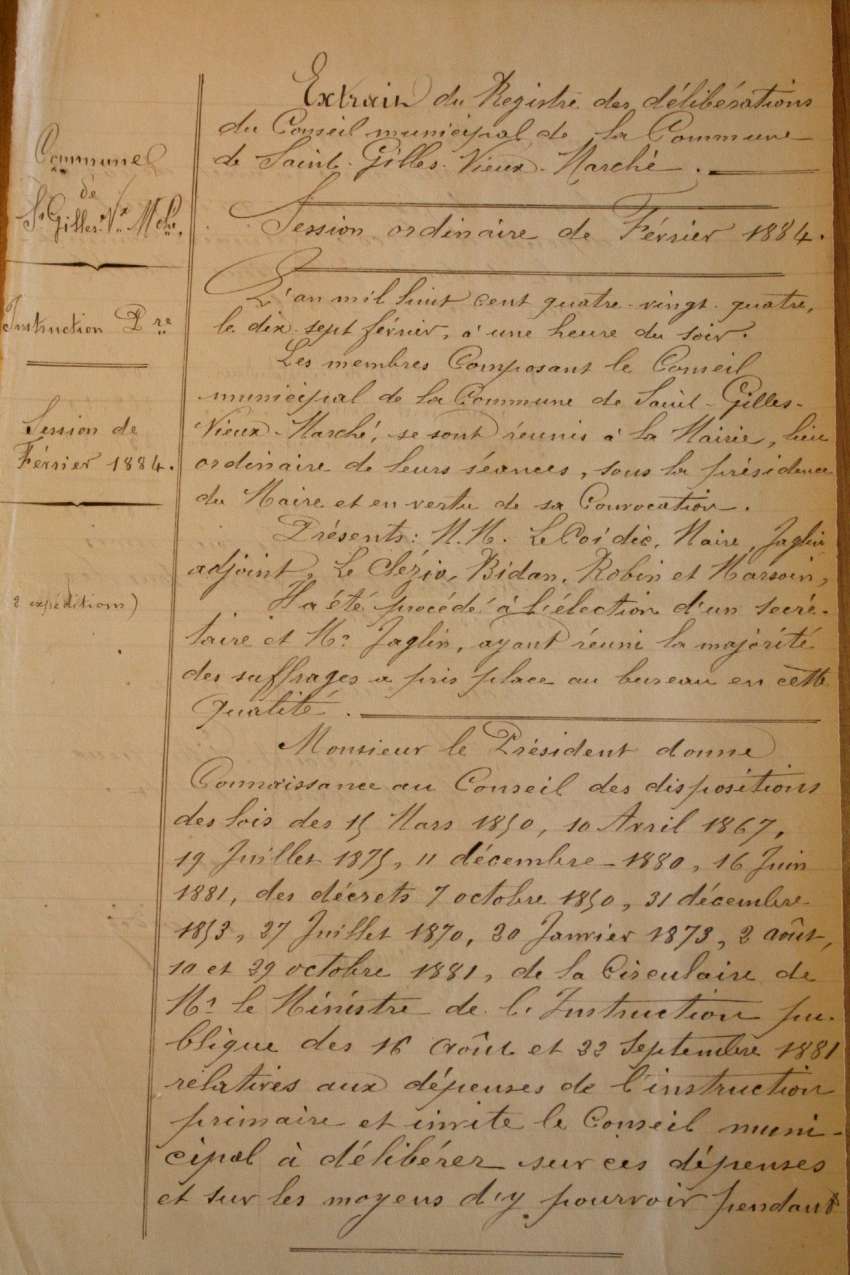 Commune
de
St Gilles Vx Mché.
Instruction Pre
Session de
Février 1884.
2 expéditions)
Extrait du Registre des délibérations
du Conseil municipal de la Commune
de Saint-Gilles-Vieux-Marché.
Session ordinaire de Février 1884.
L'an mil huit cent quatre-vingt-quatre,
le dix-sept février, à une heure du soir.
Les membres Composant le Conseil
municipal de la Commune de Saint-Gilles-
Vieux-Marché, se sont réunis à la Mairie, lieu
ordinaire de leurs séances, sous la présidence
du Maire et en vertu de sa Convocation.
Présents: M.M. Le Coidic, Maire, Jaglin
adjoint, Le Clézio, Bidan, Robin et Marsoin,
Il a été procédé à l'élection d'un secré-
taire et Mr Jaglin, ayant réuni la majorité
des suffrages a pris place au bureau en cette
qualité.
Monsieur le Président donne
Connaissance au Conseil des dispositions
des lois des 15 Mars 1850, 10 Avril 1867,
19 Juillet 1875, 11 décembre 1880, 16 Juin
1881, des décrets 7 octobre 1850, 31 décembre
1853, 27 Juillet 1870, 20 Janvier 1873, 2 août,
10 et 29 octobre 1881, de la Circulaire de
Mr le Ministre de l'Instruction pu-
blique des 16 août et 22 Septembre 1881
relatives aux dépenses de l'instruction
primaire et invite le Conseil muni-
cipal à délibérer sur ces dépenses
et sur les moyens d'y pourvoir pendant